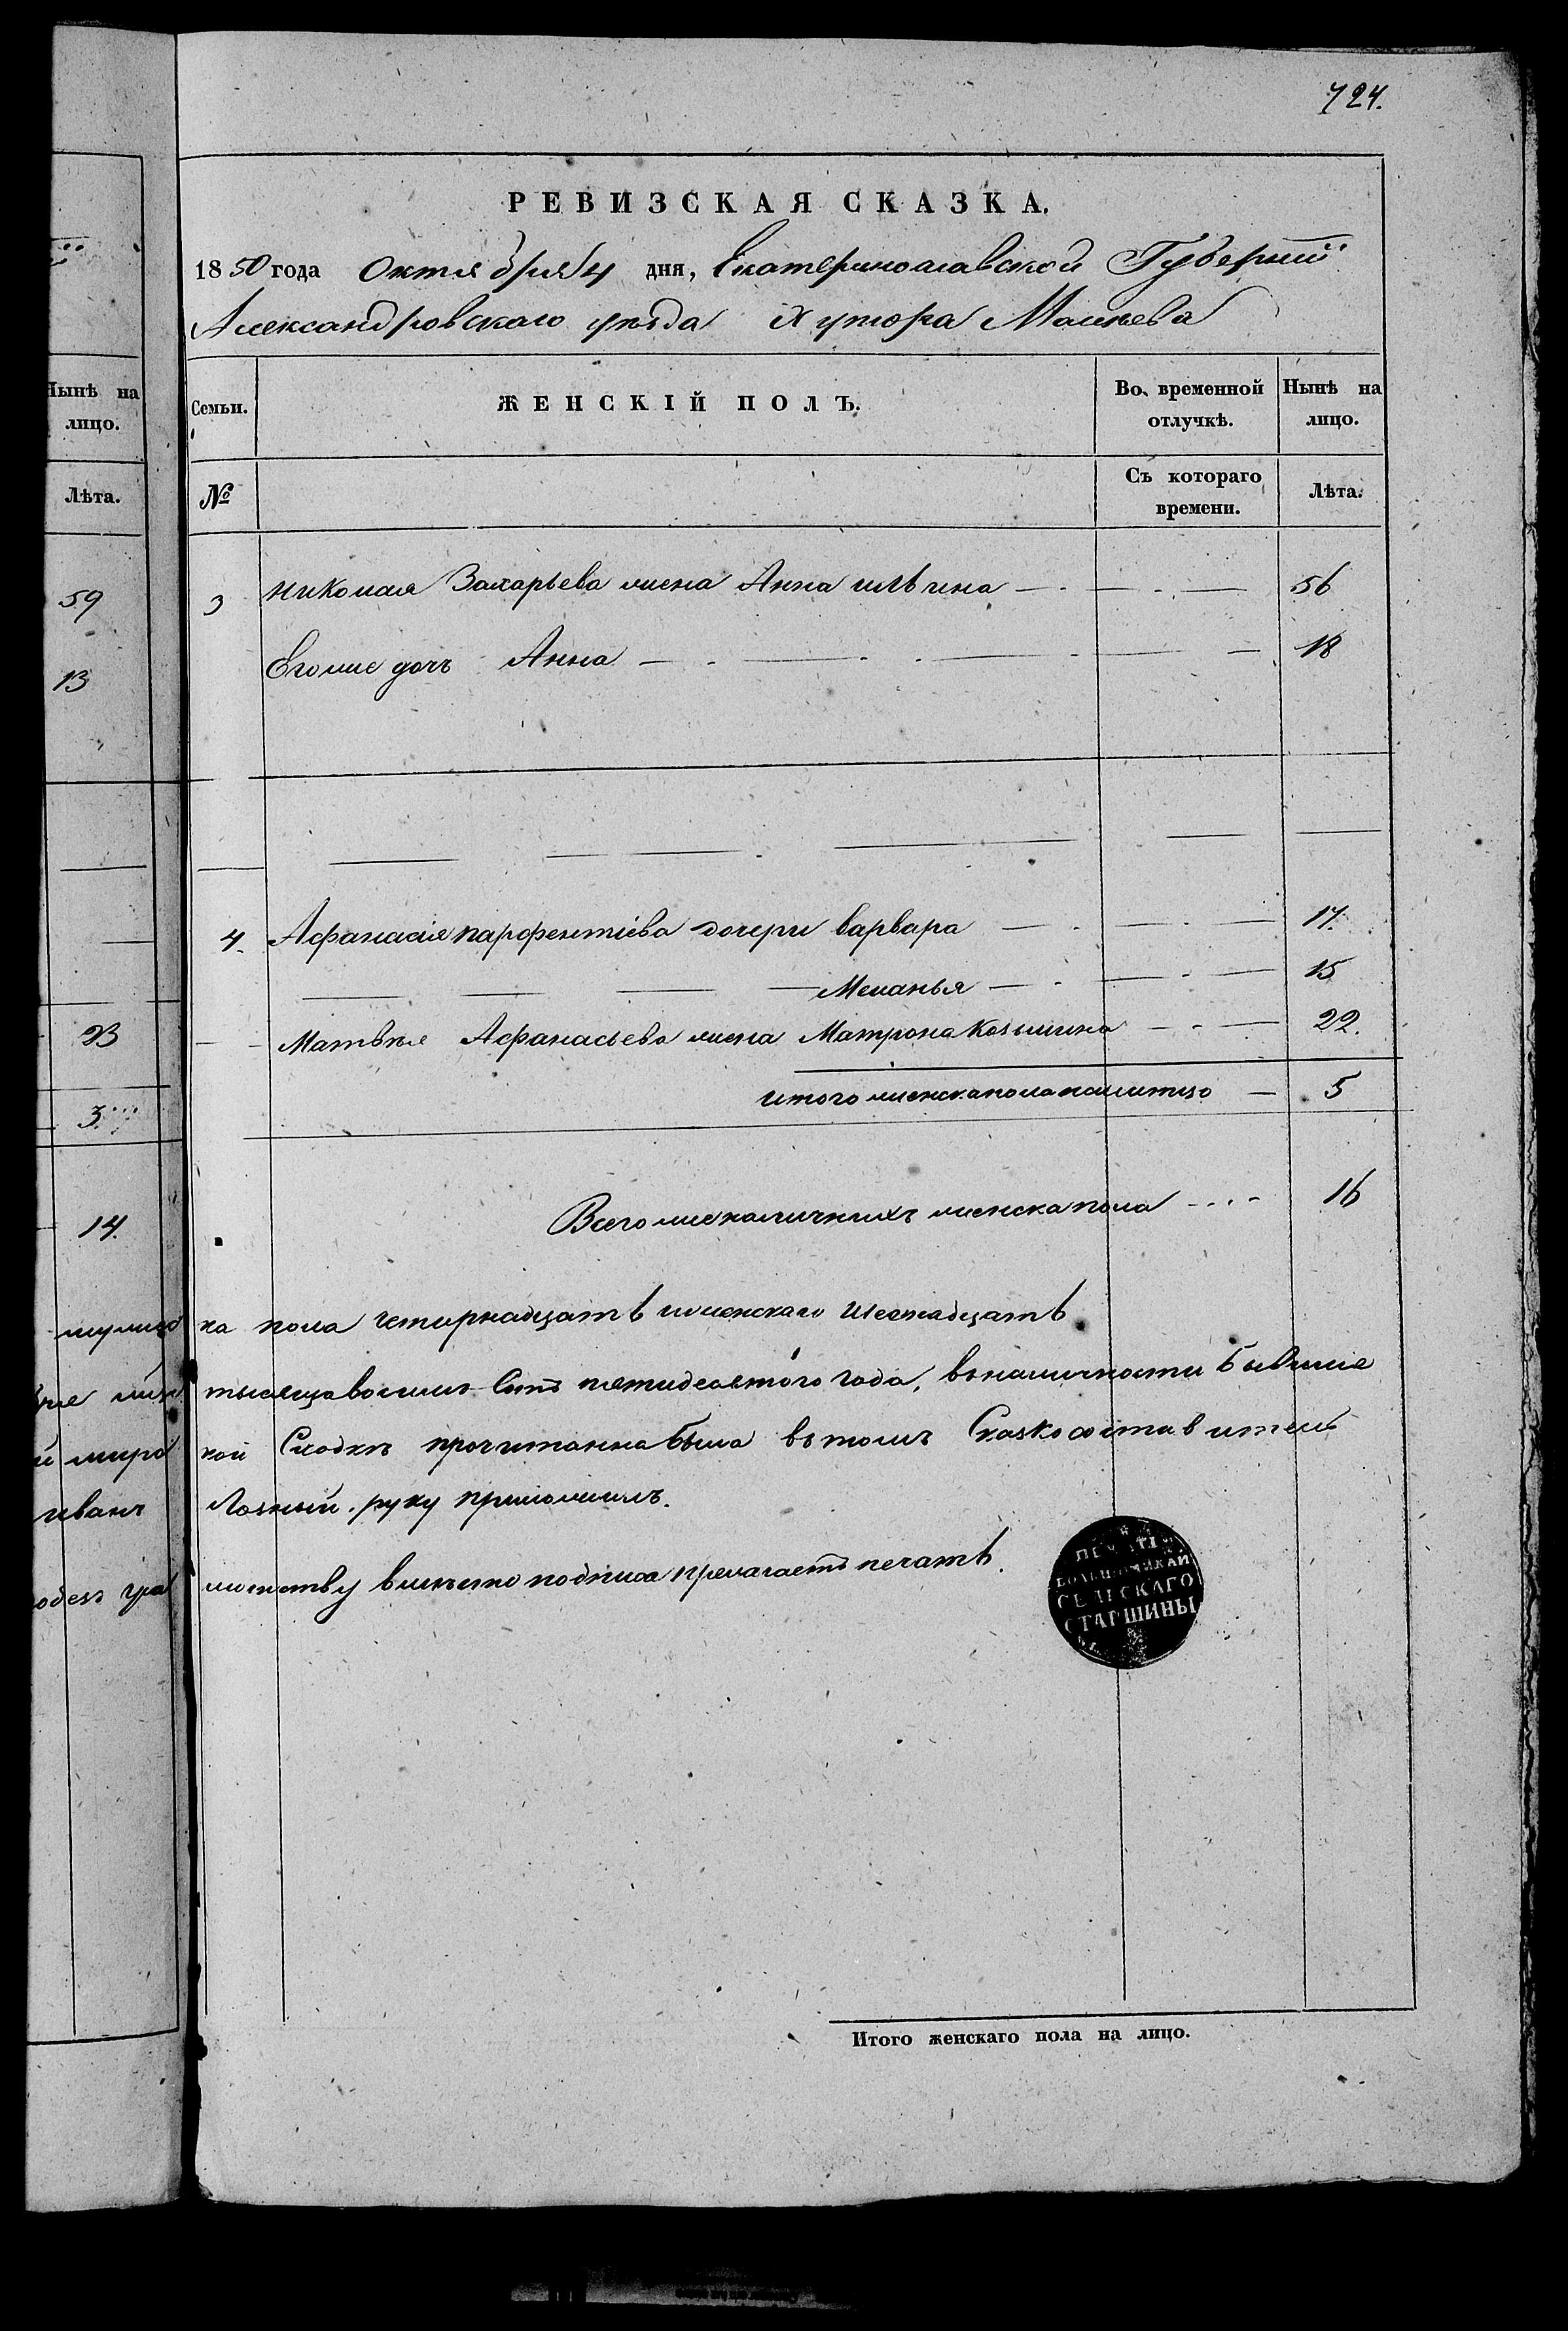 724.
РЕВИЗСКАЯ СКАЗКА.
1850 года Октября 4 дня, Екатеринославской Губернiи
Александровскаго уезда Хутора
Нынѣ на лицо.
Лѣта.
59
13
23
3
14.
Семьи.
ЖЕНСКІЙ ПОЛЪ.
Во временной отлучкѣ.
Нынѣ на лицо.
№
Съ котораго времени.
Лѣта.
3 николая Захарьева жена Анна ильина — 56
Егоже дочъ Анна — 18
4. Афанасiя парфентiева дочери варвара — 17.
Меланья — 15
Матвѣя Афанасьева жена Матрона Козьмина — 22.
итого женска пола налицо — 5
Всего же наличнихъ женска пола 16
ка пола четирнадцатъ иженскаго Шеснадцатъ
тысяща восимъ Сотъ пятидесятого года, вналичности бывшие
кой Сходкѣ прочитанна была втомъ Сказкосоставитель
руку приложилъ.
вместо подписа прелагаетъ печатъ.
иванъ
ПЕЧАТЬ
СЕЛЬСКАГО
СТАРШИНЫ
Итого женскаго пола на лицо.